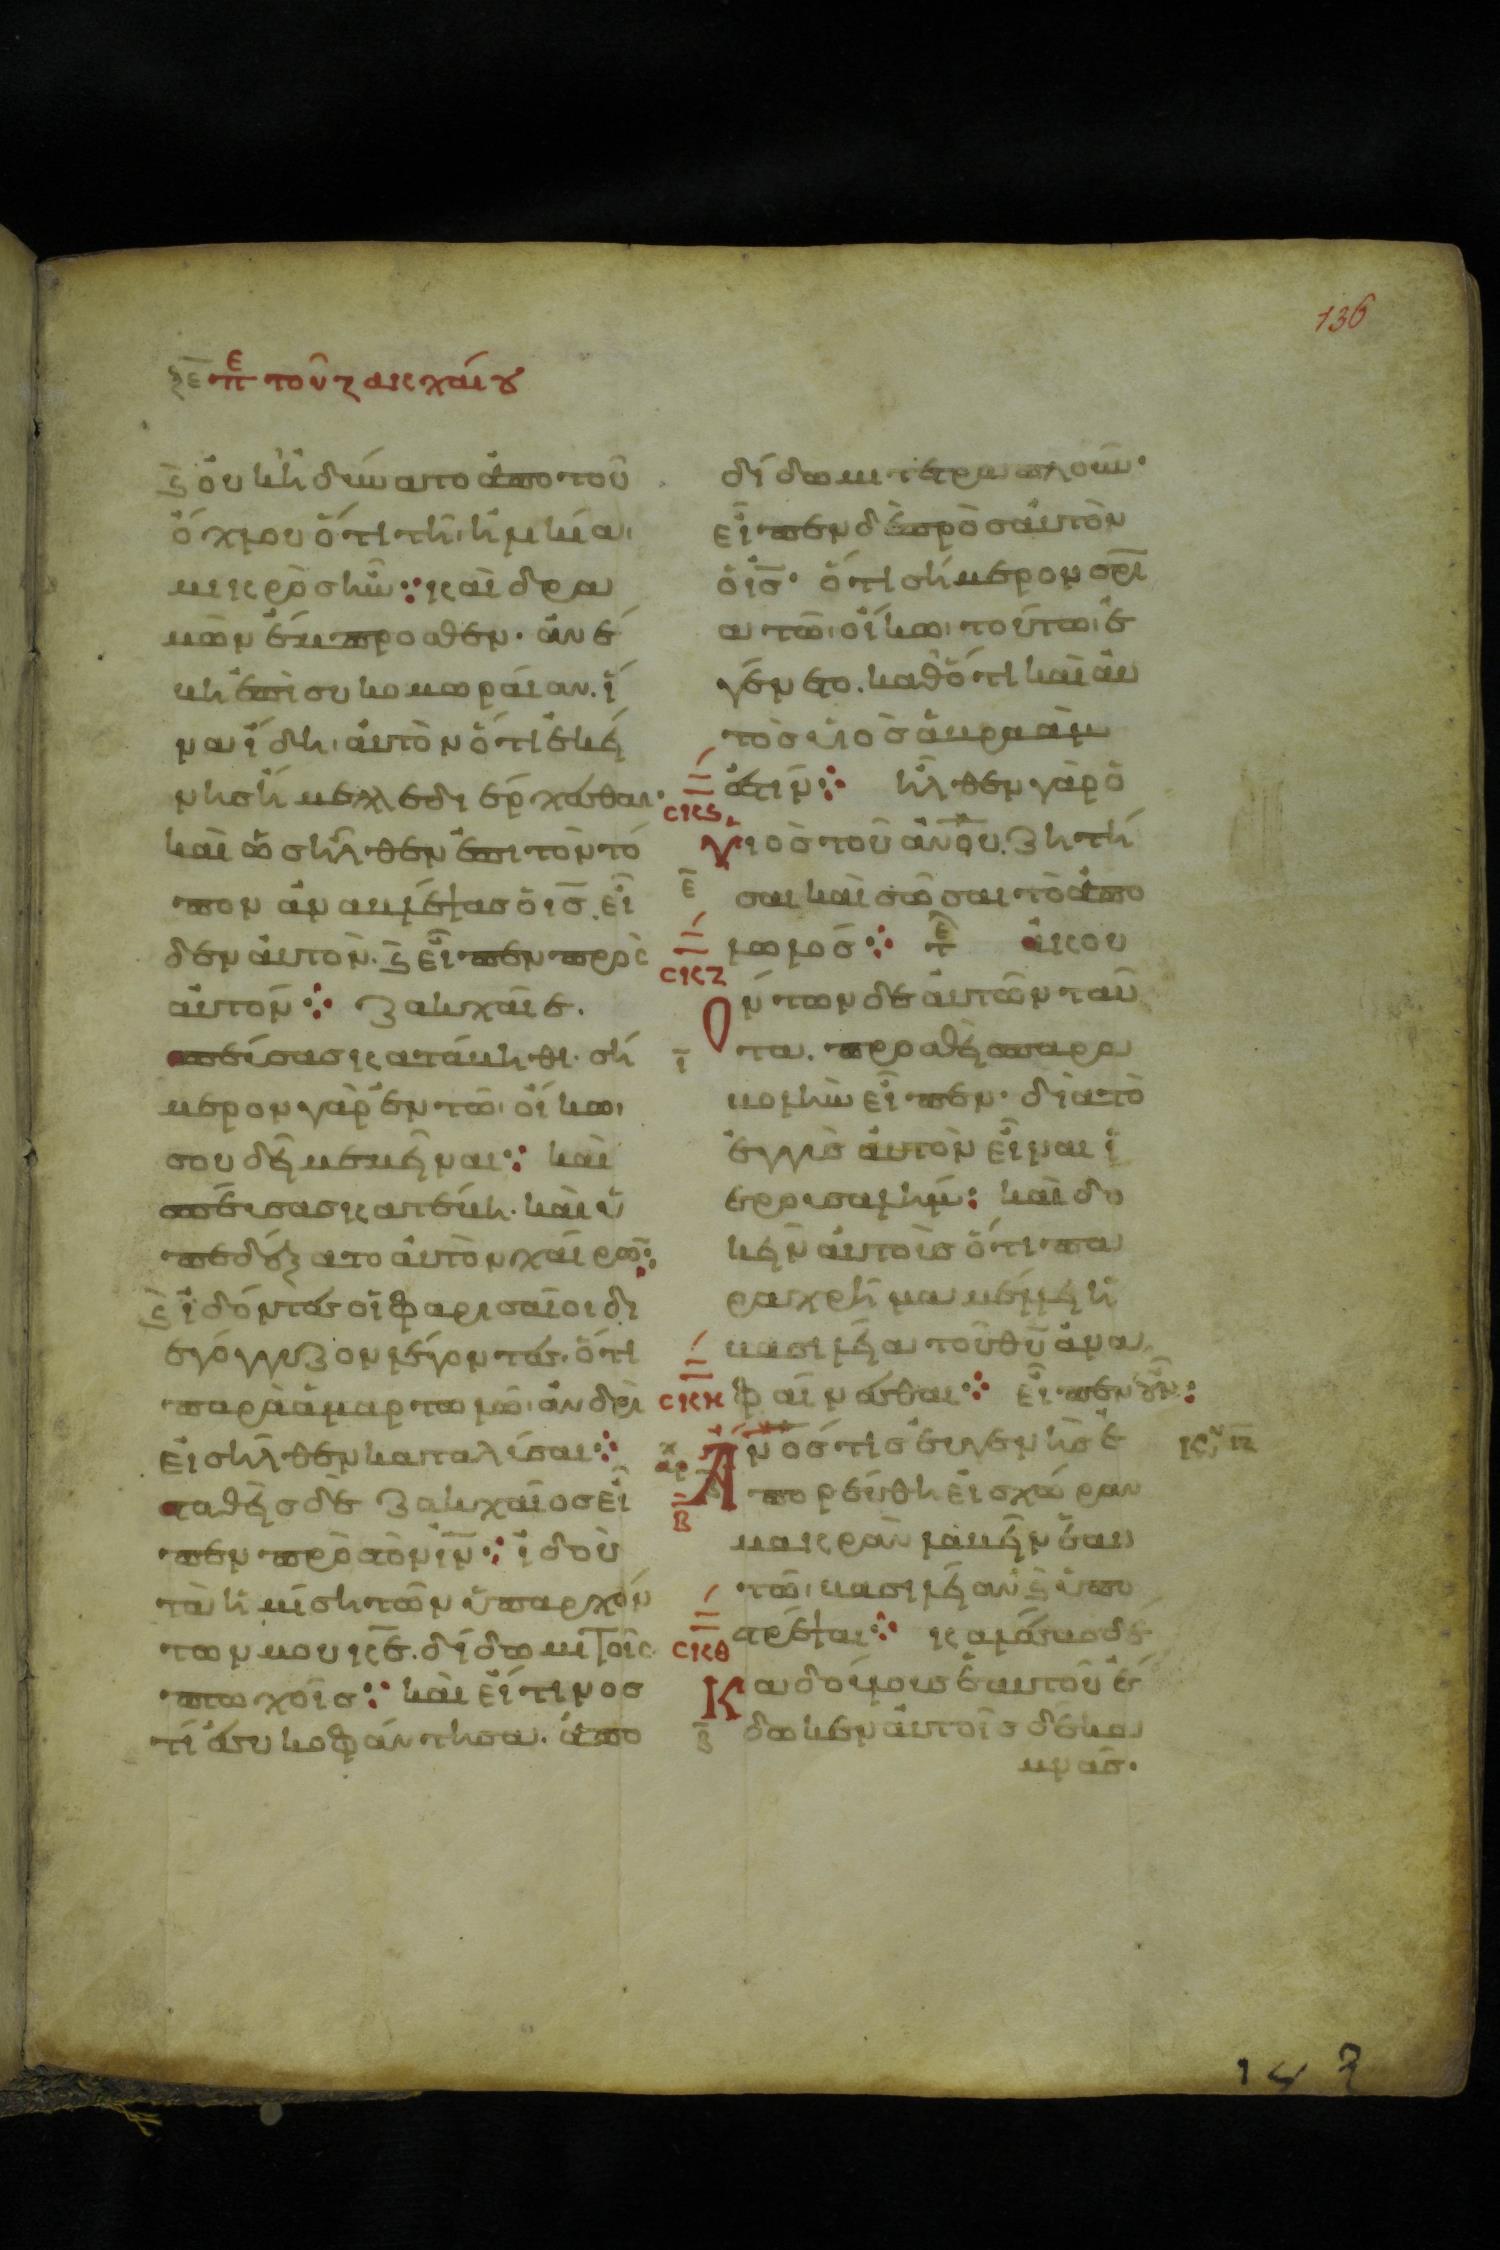 136
ξε πε τοῦ ζακχαίου
ϗ οὐκ ἠδύνατο ἀπὸ τοῦ
ὄχλου ὅτι τῆ ἡλικία
μικρὸς ἦν· καὶ δρα
μὼν ἔμπροσθεν· ἀνέ
βη ἐπὶ συκομωραίαν. ἵ
να ἴδη αὐτὸν ὅτι ἐκεί
νης ἤμελλε διέρχεσθαι·
καὶ ὡς ἦλθεν ἐπι τὸν τό
πον ἀναβλέψας ὁ ις εἶ
δεν αὐτὸν· ϗ εἶπεν πρὸς
αὐτόν· ζακχαῖε.
σπεύσας κατάβηθι· σή
μερον γὰρ ἐν τῶ οἴκω
σου δεῖ με μεῖναι· καὶ
σπεύσας κατέβη· καὶ ὑ
πεδέξατο αὐτὸν χαίρων·
ϗ ἰδόντες οἱ φαρισαῖοι δι
εγόγγυζον λέγοντες· ὅτι
παρὰ ἁμαρτωλῶ ἀνδρὶ
εἰσῆλθεν καταλύσαι·
σταθεὶς δὲ ζακχαῖος εἶ
πεν πρὸς τὸν ιν· ἰδοὺ
τὰ ἡμίση τῶν ὑπαρχόν
των μου κε. δίδωμι τοῖς
πτωχοῖς· καὶ εἴ τινος
τί ἐσυκοφάντησα. ἀπο
δίδωμι τετραπλοῦν·
εἶπεν δὲ πρὸς αὐτὸν
ὁ ις· ὅτι σήμερον σρι
α τῶ οἴκω τούτω ἐ
γένετο. καθότι καὶ αὐ
τὸς υἱὸς ἀβραὰμ
ἐστιν· ἦλθεν γὰρ ὁ
σκς
υἱὸς τοῦ ανου. ζητῆ
ε
σαι καὶ σῶσαι τὸ ἀπο
λωλός· τε ἀκου
σκζ
όντων δὲ αὐτῶν ταῦ
τα. προσθεὶς παρα
ι
βολὴν εἶπεν· διὰ τὸ
ἐγγὺς αὐτὸν εἶναι ἱ
ερουσαλήμ· καὶ δο
κεῖν αὐτοῖς ὅτι πα
ραχρῆμα μέλλει ἡ
βασιλεία τοῦ θυ ἀνα
φαίνεσθαι· εἶπεν οὖν·
σκη
Ανος τις εὐγενὴς ἐ
αρχ
πορεύθη εἰς χώραν
β
μακρὰν λαβεῖν ἑαυ
τῶ βασιλείαν ϗ ὑπο
στρέψαι· καλέσας δὲ
σκθ
Κα δούλους ἑαυτοῦ ἔ
δωκεν αὐτοῖς δέκα
β
μνᾶς·